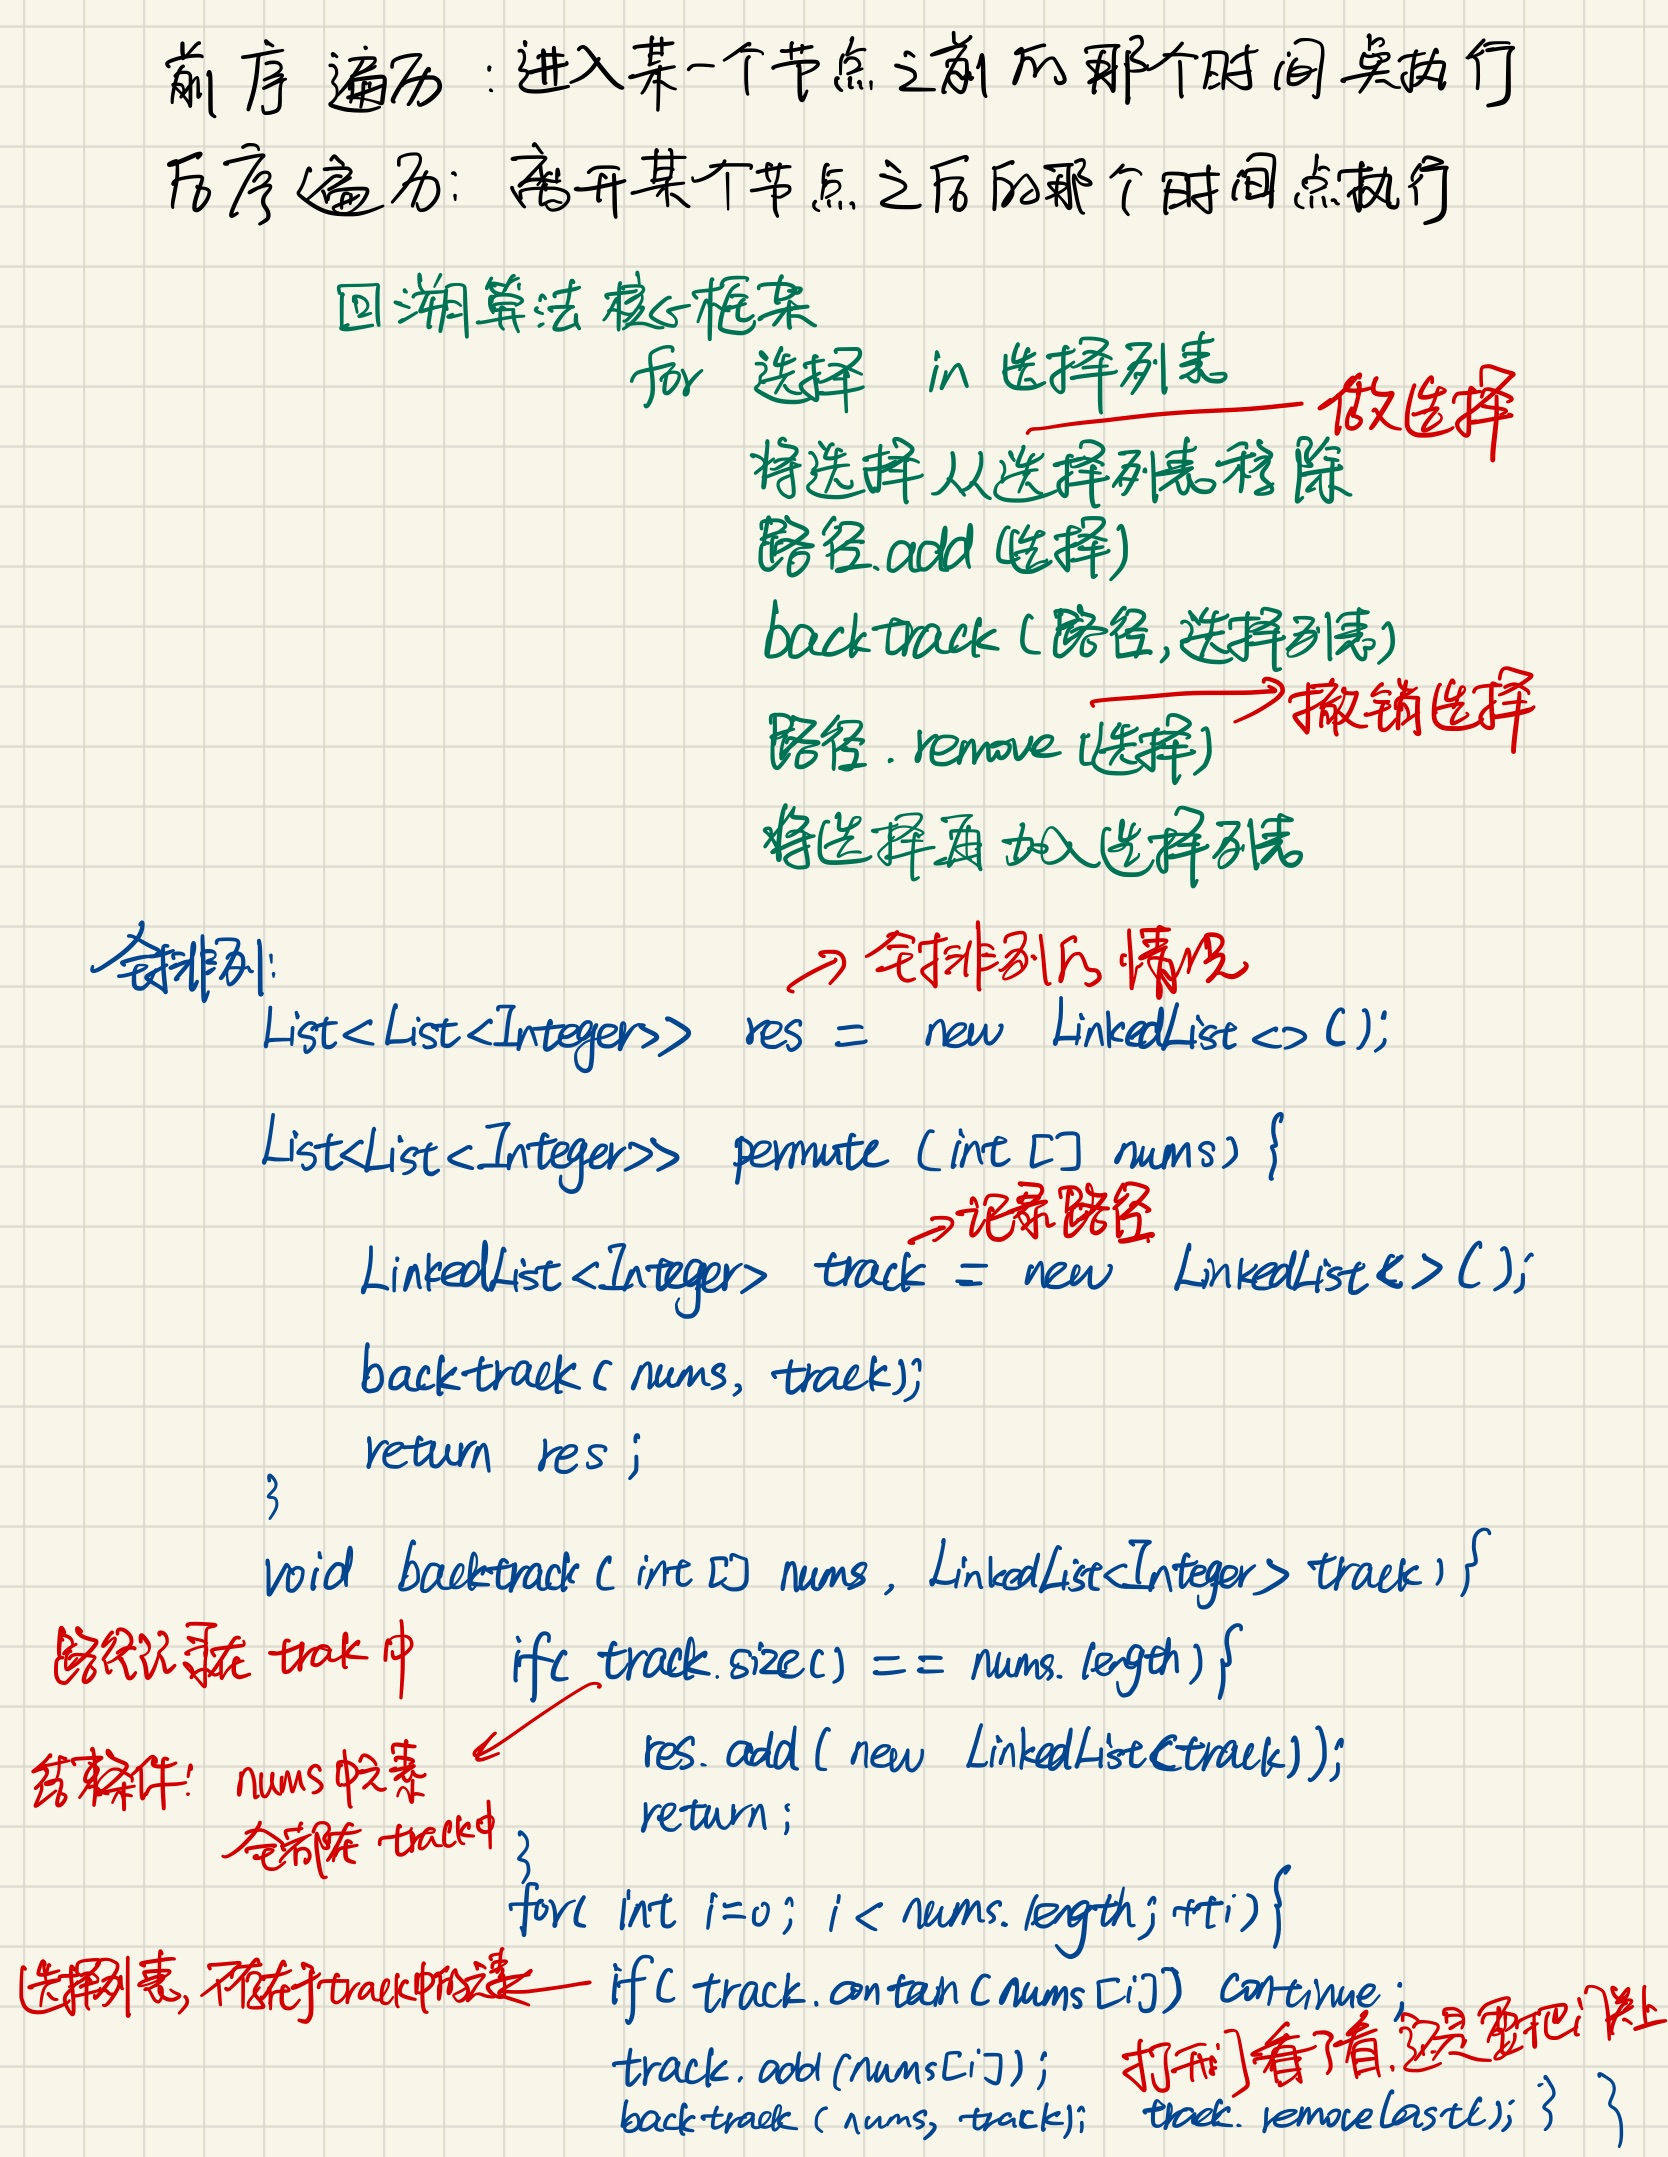 前序遍历：进入某一个节点之前的那个时间点执行
后序遍历：离开某个节点之后的那个时间点执行
回溯算法核心框架
for 选择 in 选择列表
做选择
将选择从选择列表移除
路径.add(选择)
backtrack(路径,选择列表)
撤销选择
路径.remove(选择)
将选择再加入选择列表
全排列：
全排列的情况
List<List<Integer>> res = new LinkedList<>();
List<List<Integer>> permute (int [] nums) {
记录路径
LinkedList<Integer> track = new LinkedList<>();
backtrack( nums, track);
return res;
}
void backtrack( int [] nums, LinkedList<Integer> track) {
路径记录在 trak 中
if( track.size() == nums.length) {
res.add( new LinkedList(track));
结束条件： nums中元素
return;
全部在 track中
}
for( int i=0; i < nums.length; ++i) {
选择列表,不存在于track中的选择
if( track.contain(nums[i]) continue;
打开门看了看,还是要把门关上
track.add(nums[i]);
backtrack( nums, track); track.removeLast(); } }